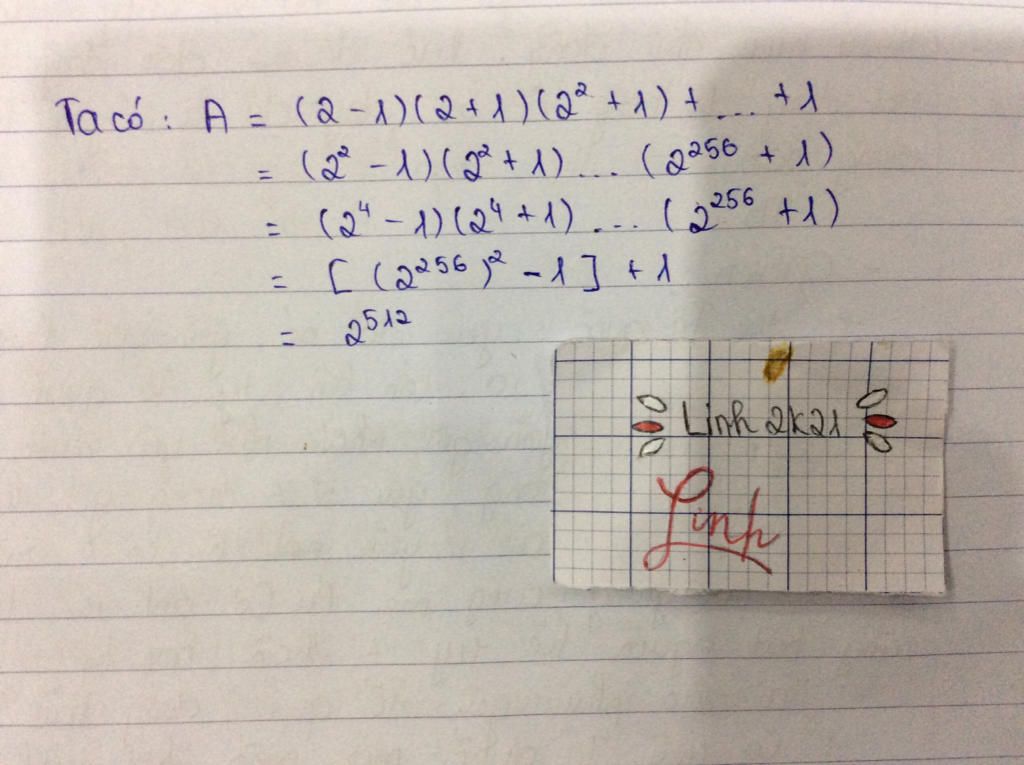 Ta có : A = (2 - 1)(2 + 1)(2² + 1) + ... + 1
= (2² - 1)(2² + 1) ... (2²⁵⁶ + 1)
= (2⁴ - 1)(2⁴ + 1) ... (2²⁵⁶ + 1)
= [ (2²⁵⁶)² - 1 ] + 1
= 2⁵¹²
Linh 2k21
Linh